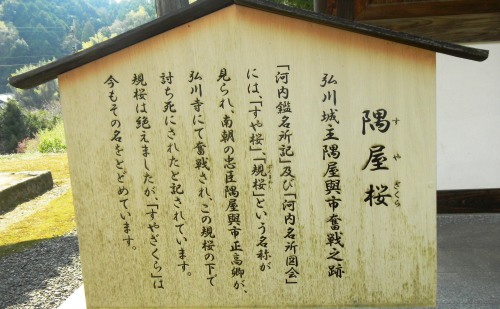 隅屋桜
すやざくら
弘川城主隅屋與市奮戦之跡
「河内鑑名所記」及び「河内名所図会」
には、「すや桜」、「規桜」という名称が
見られ、南朝の忠臣隅屋與市正高卿が、
弘川寺にて奮戦され、この規桜の下で
討ち死にされたと記されています。
規桜は絶えましたが「すやざくら」は
今もその名をとどめています。